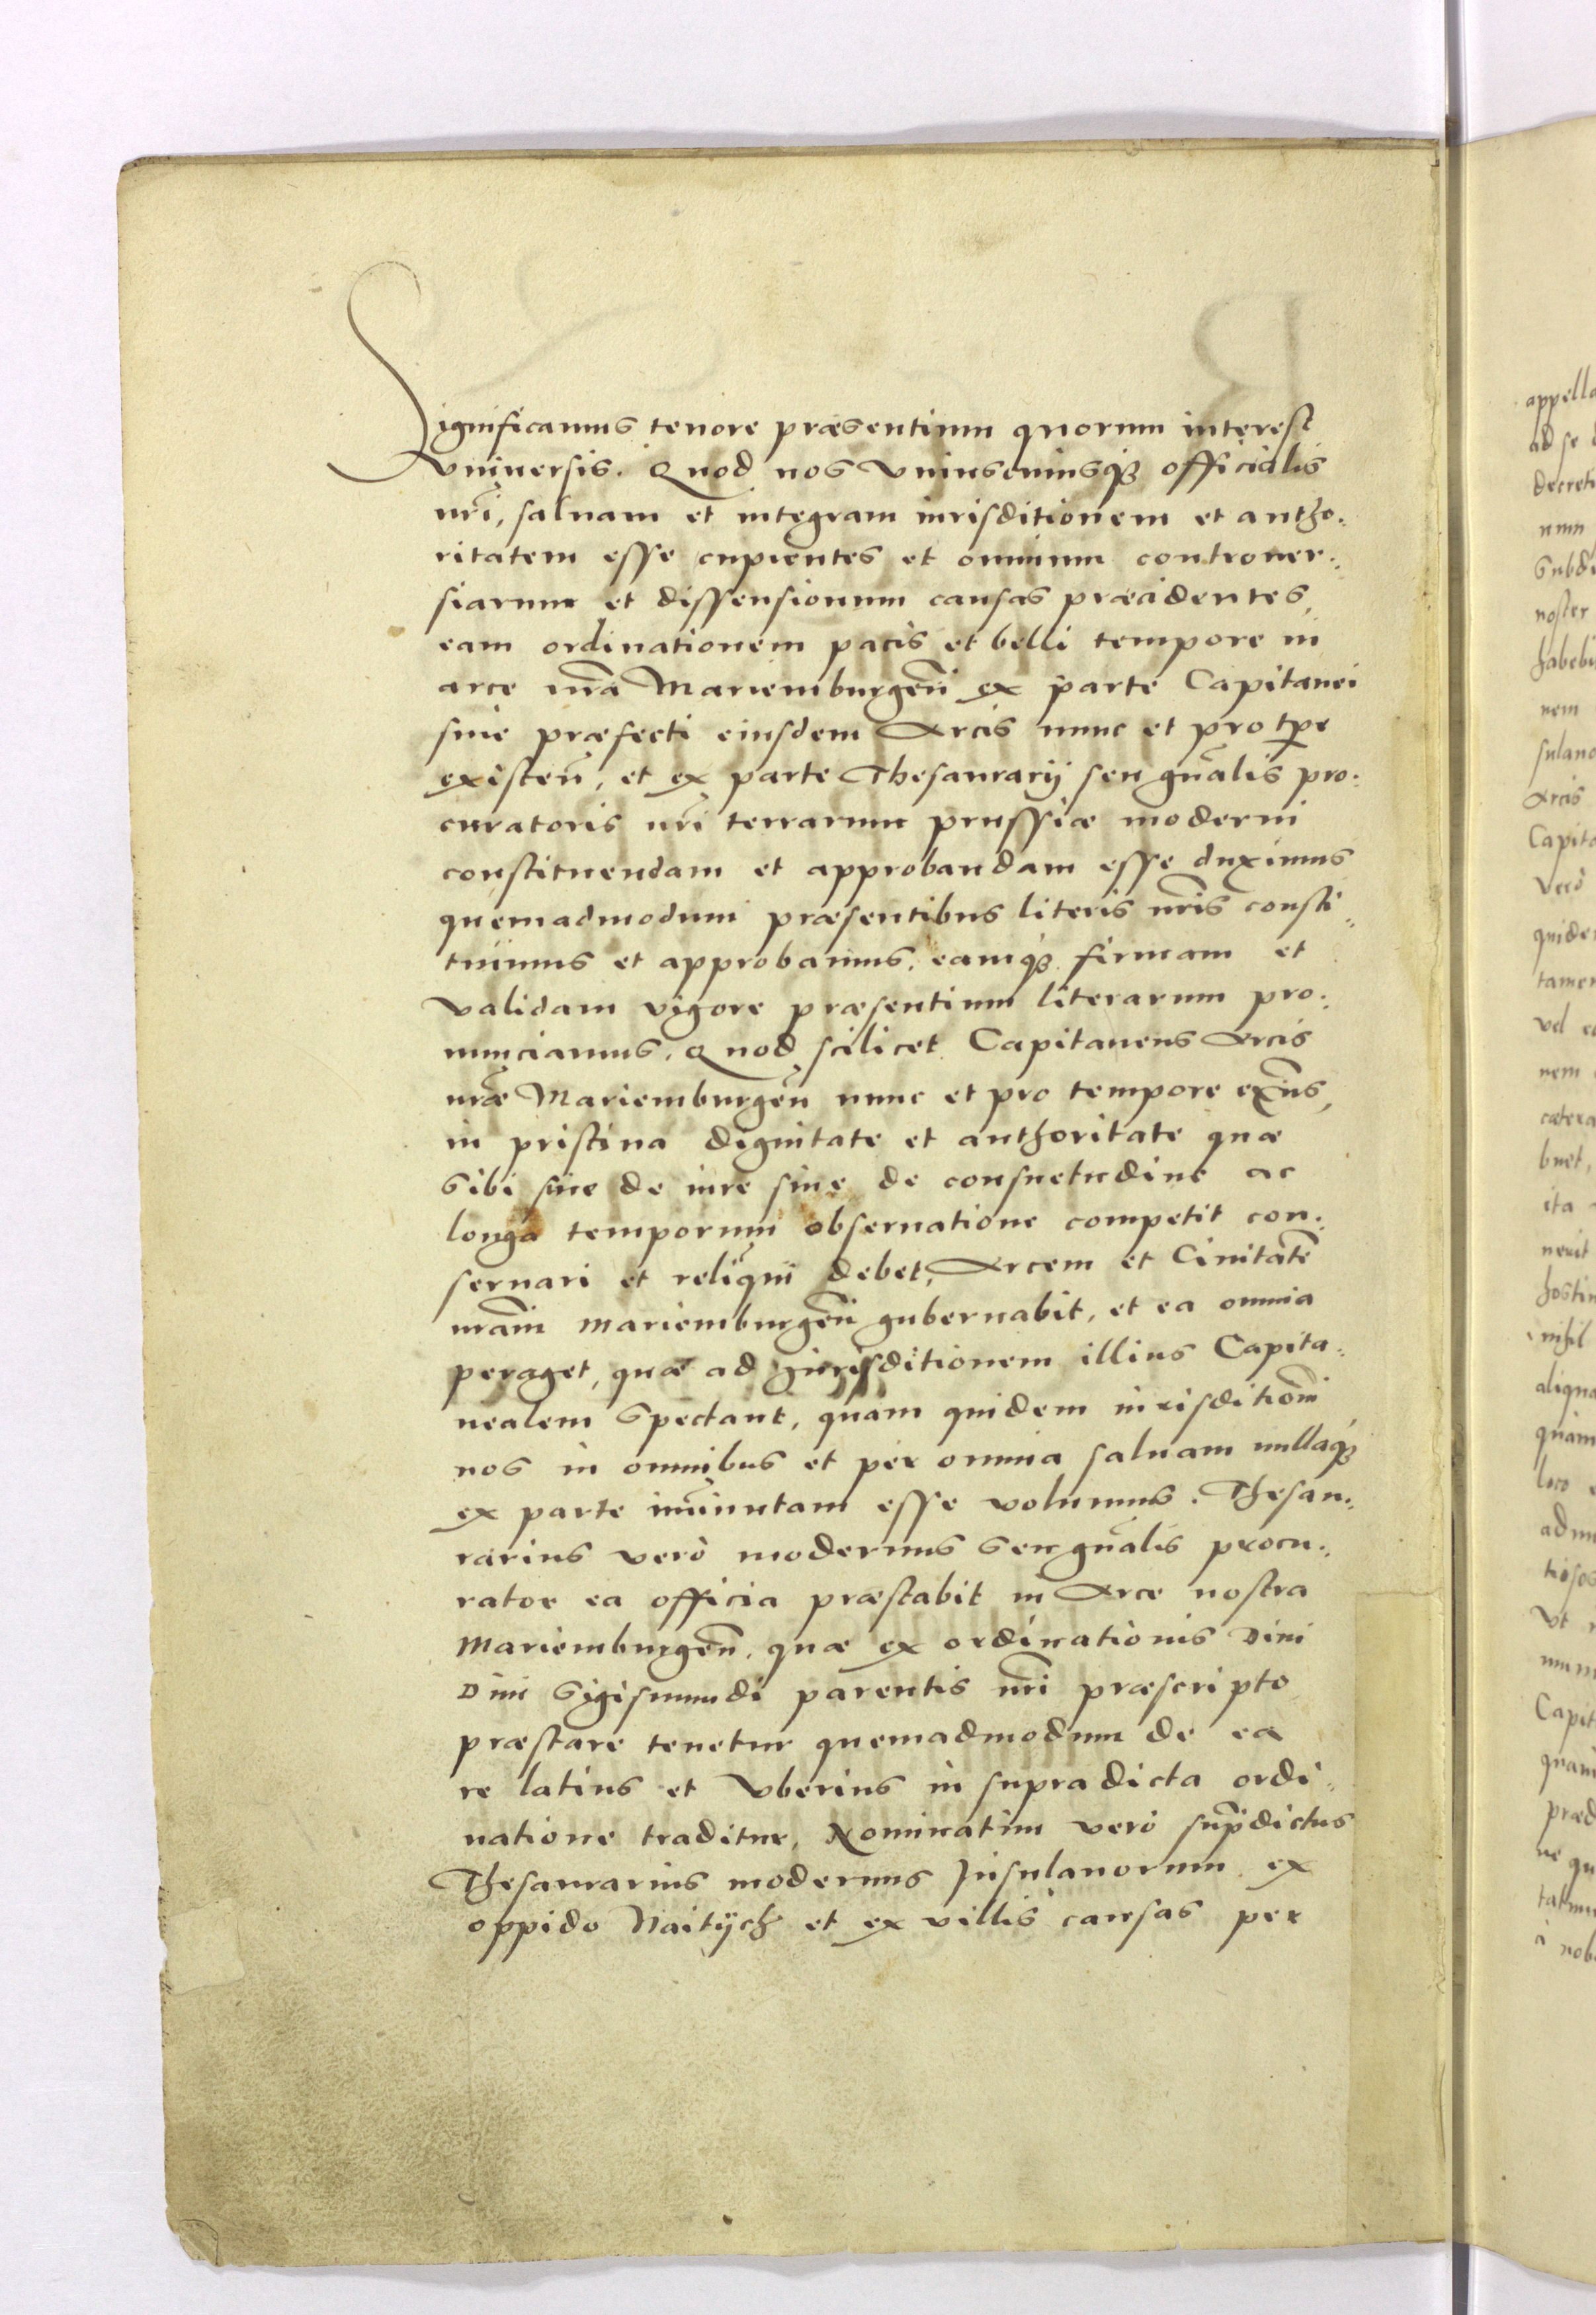 Significamus tenore præsentium quorum interest
Vniuersis. Quod nos Vniuscuiusqꝫ officialis
nr̃i, saluam et integram iurisditionem et autho:
ritatem esse cupientes et omnium controuer:
siarum et dissensionum causas præcidentes,
eam ordinationem pacis et belli tempore in
arce nr̃a Mariemburgeñ ex parte Capitanei
siue præfecti eiusdem Arcis nunc et pro tp̃re
existeñ, et ex parte Thesaurarij seu gñalis pro:
curatoris nr̃i terrarum prussiæ moderni
constituendam et approbandam esse duximus
quemadmodum præsentibus literis nr̃is consti:
tuimus et approbamus, eamqꝫ firmam et
validam vigore præsentium literarum pro:
nunciamus. Quod scilicet Capitaneus Arcis
nr̃æ Mariemburgeñ nunc et pro tempore ex̃ns,
in pristina dignitate et authoritate quæ
sibi siue de iure siue de consuetudine ac
longa temporum obseruatione competit con:
seruari et reliqui debet, Arcem et Ciuitatẽ
nr̃am Mariemburgeñ gubernabit, et ea omnia
peraget, quæ ad Jurisditionem illius Capita:
nealem spectant, quam quidem iurisditionẽ
nos in omnibus et per omnia saluam nullaqꝫ
ex parte im̃inutam esse volumus. Thesau:
rarius verò modernus seu gñalis procu:
rator ea officia præstabit in Arce nostra
Mariemburgeñ, quæ ex ordinationis Diui
Dñi Sigismundi parentis nr̃i præscripto
præstare tenetur quemadmodum de ea
re latius et Vberius in supradicta ordi:
natione traditur, Nominatim verò supr̃adictus
Thesaurarius modernus Insulanorum ex
oppido Naitÿch et ex villis causas per
appella
ad se
decreti
num
subdi
noster
habebi
nem
sulano
Arcis
Capita
verò
quide
tamen
vel
nem
cætera
buet,
ita
hostiu
nihil
aliqua
quam
loco
Vt
Capit
quam
præd
ne qu
à nob